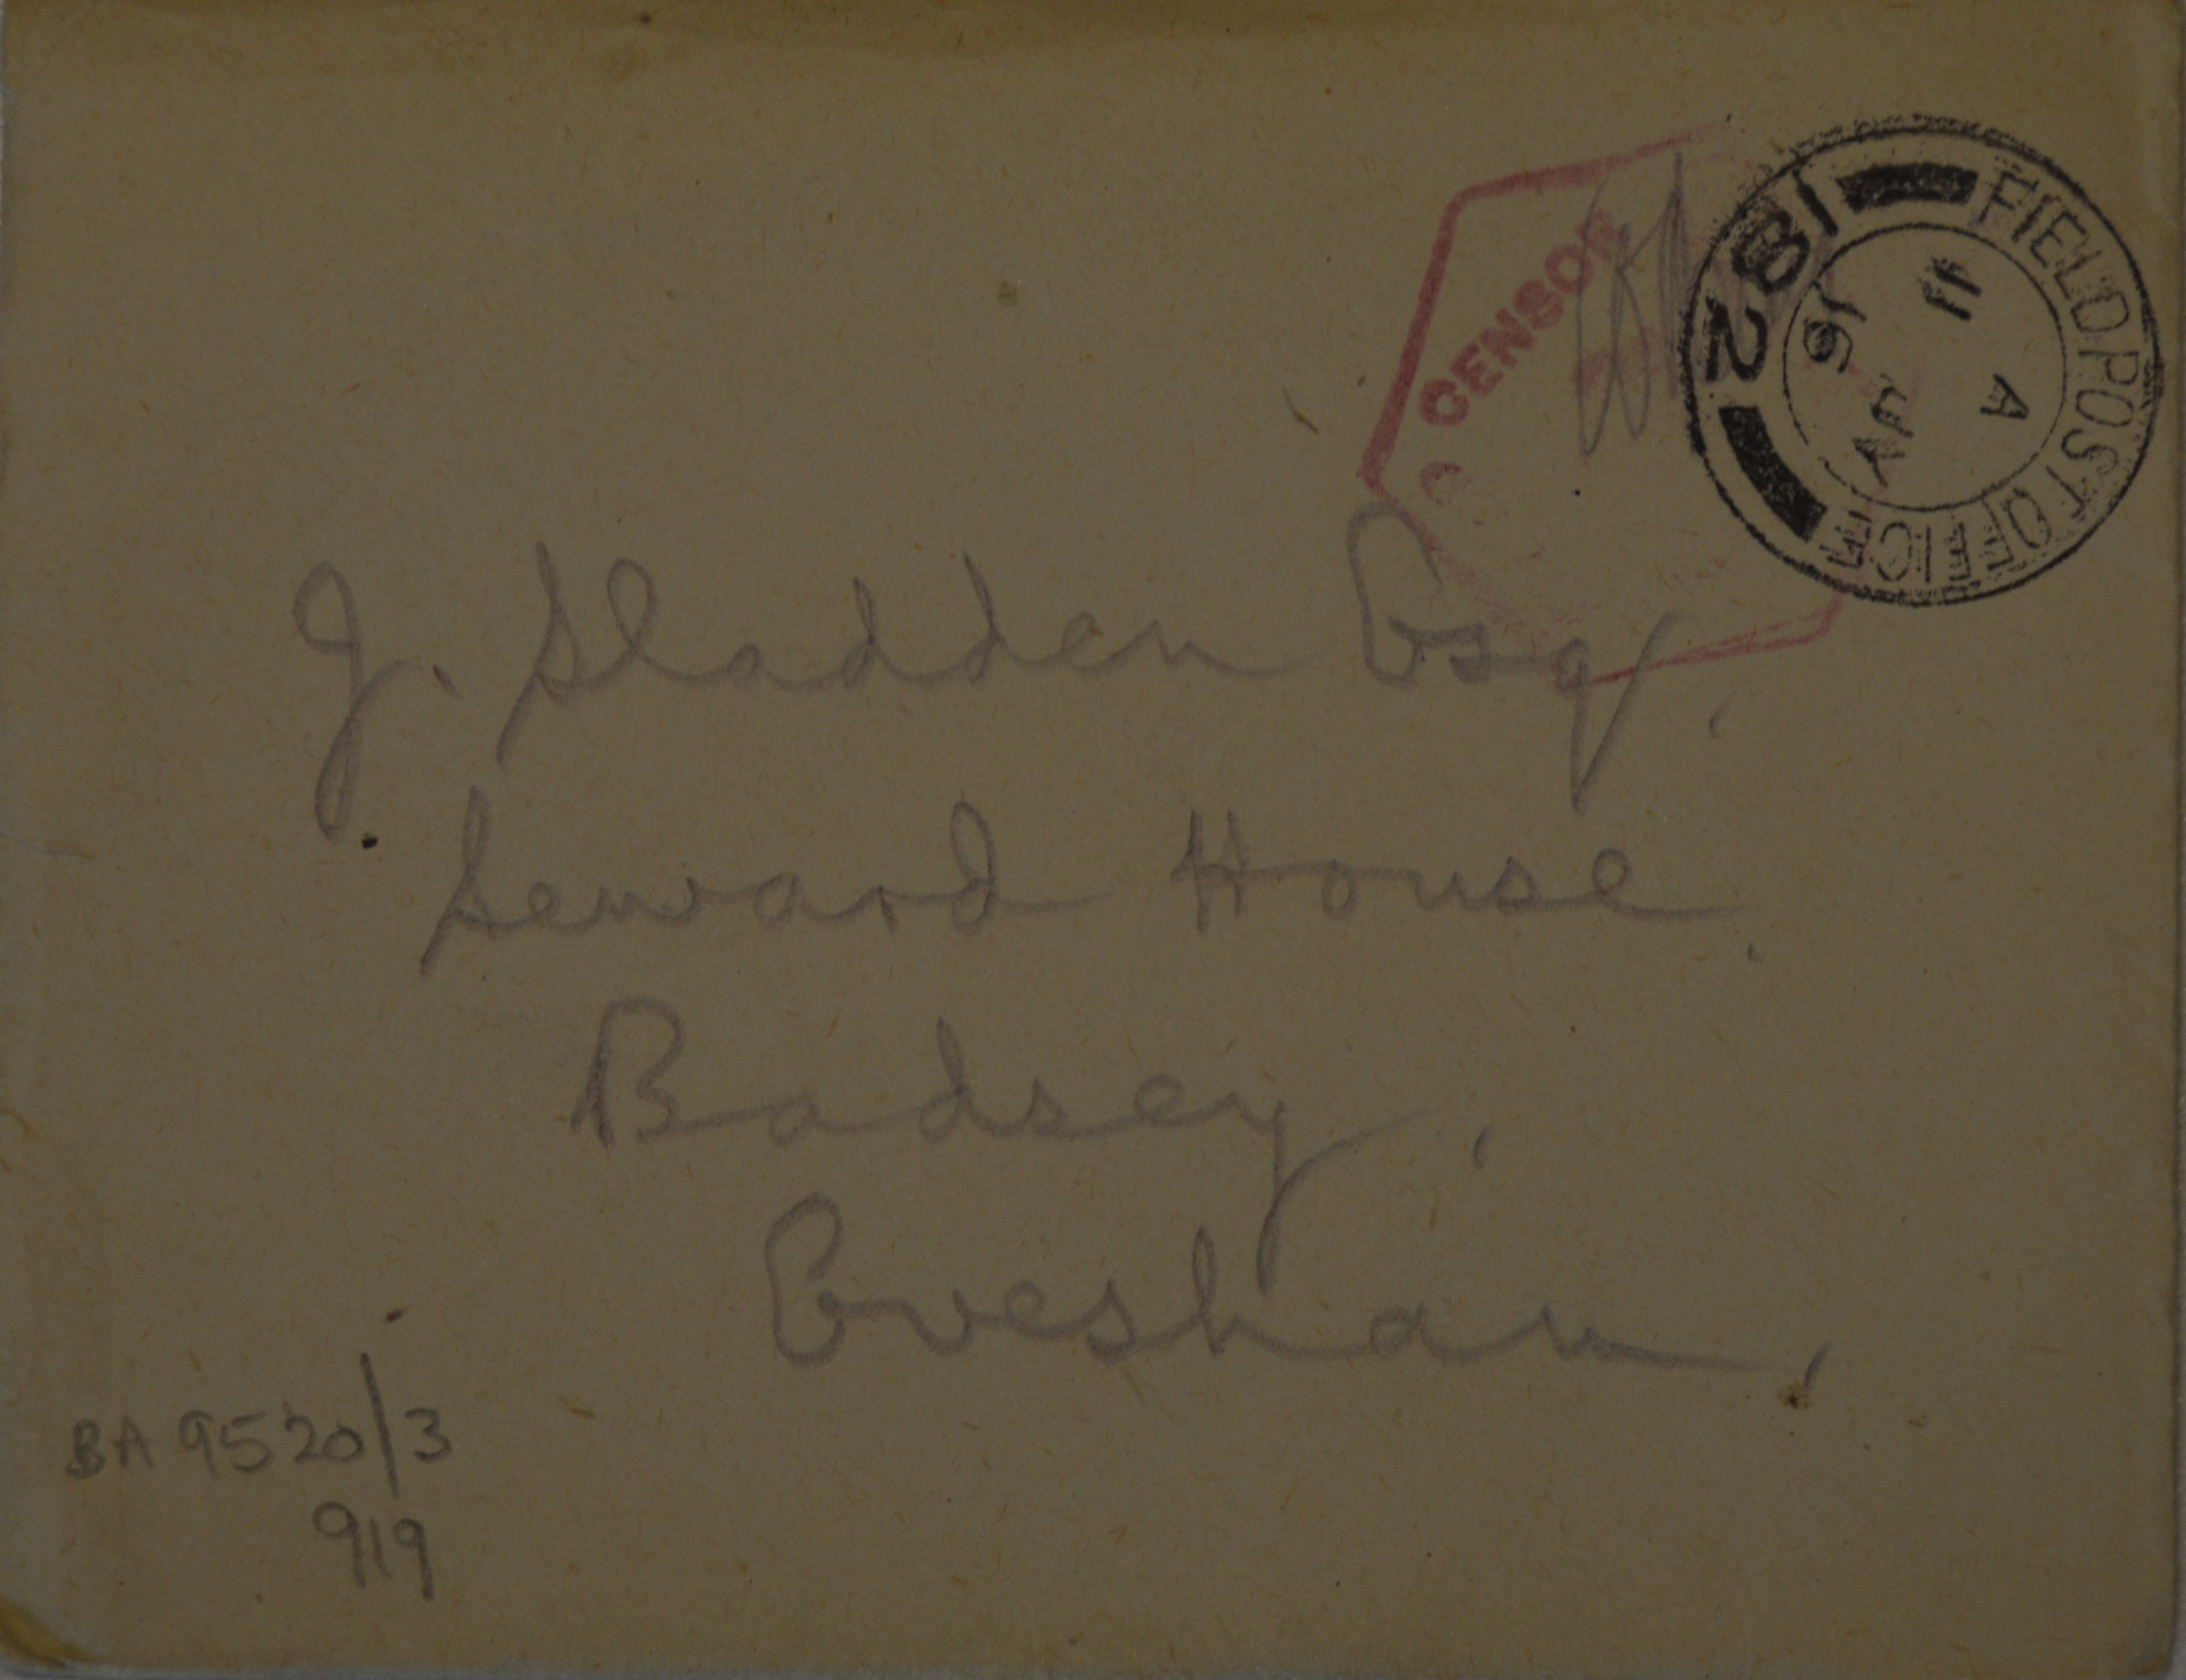 CENSOR
FIELD POST OFFICE
A
11 JY
16
182
J. Sladden Esq,
Seward House,
Badsey,
Evesham,
BA 9520/3
919